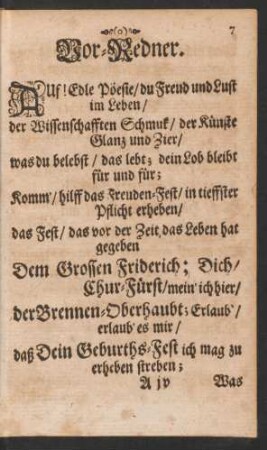 (o) 7
Vor-Redner.
AUf! Edle Pöesie/ du Freud und Lust
im Leben/
der Wissenschafften Schmuk/ der Künste
Glanz und Zier/
was du belebst/ das lebt; dein Lob bleibt
für und für;
Komm'/ hilff das Freuden-Fest/ in tieffster
Pflicht erheben/
das Fest/ das vor der Zeit das Leben hat
gegeben
Dem Grossen Friderich; Dich/
Chur-Fürst/ mein' ich hier/
der Brennen-Oberhaubt; Erlaub'/
erlaub' es mir/
daß Dein Geburths-Fest ich mag zu
erheben streben;
A jv Was